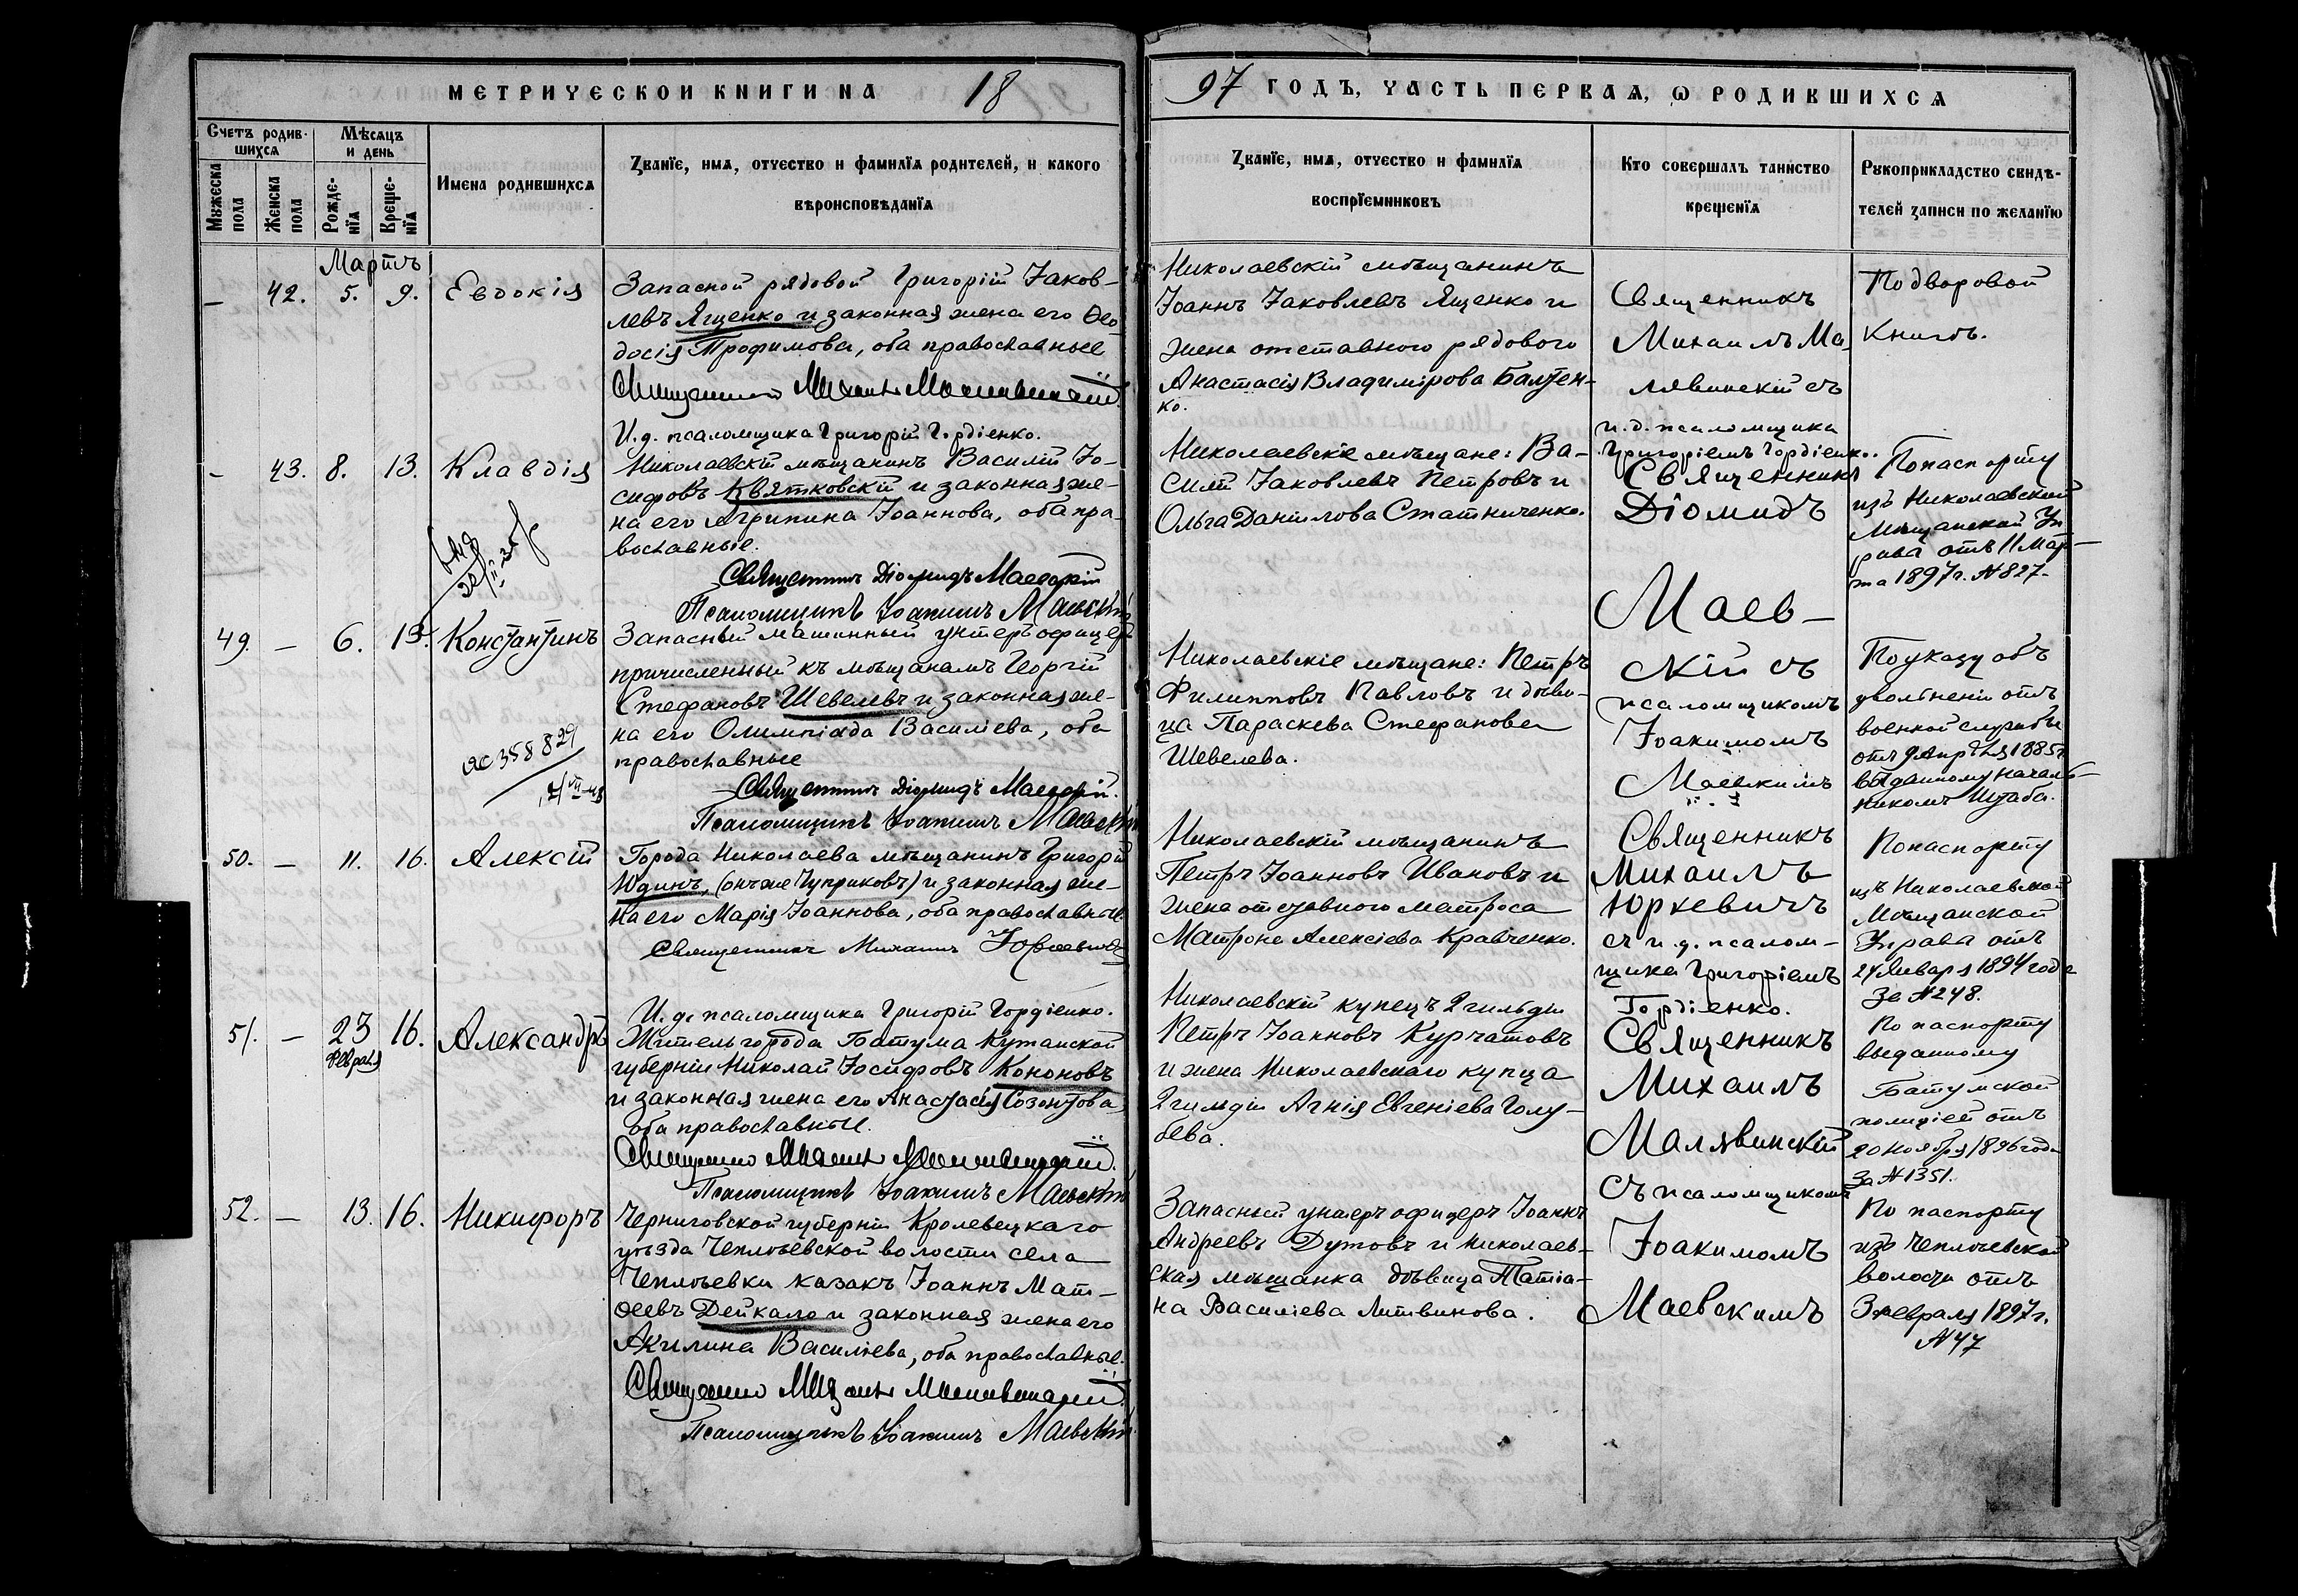 МЕТРИЧЕСКОЙ КНИГИ НА 18
97 ГОДЪ, ЧАСТЬ ПЕРВАЯ, Ѡ РОДИВШИХСЯ
Счетъ родив-
шихся
Мужеска
пола
Женска
пола
Мѣсяцъ
и день
Рожде-
нїя
Креще-
нїя
Имена родившихся
Званїе, имя, отчество и фамилїя родителей, и какого
вѣроисповѣданїя
Званїе, имя, отчество и фамилїя
воспрїемниковъ
Кто совершалъ таинство
крещенїя
Рукоприкладство свидѣ-
телей записи по желанїю
Мартъ
— 42. 5. 9. Евдокія
Запасной рядовой Григорій Іаков-
левъ Ященко и законная жена его Ѳео
досія Трофимова, оба православные
Священникъ Михаилъ Малявинскій.
И.д. псаломщика Григорій Гордіенко.
Николаевскій мѣщанинъ
Іоаннъ Іаковлевъ Ященко и
жена отставного рядового
Анастасія Владимірова Балтен-
ко.
Священникъ
Михаилъ Ма-
лявинскій съ
и.д. псаломщика
Григоріемъ Гордіенко.
По дворовой
книгѣ.
— 43. 8. 13. Клавдія
Николаевскій мѣщанинъ Василій Іо-
сифовъ Квятковскій и законная же-
на его Агрипина Іоаннова, оба пра-
вославные.
Священникъ Діомидъ Маевскій
Псаломщикъ Іоакимъ Маевскій
Николаевскіе мѣщане: Ва-
силій Іаковлевъ Петровъ и
Ольга Даніилова Статниченко.
Священникъ
Діомидъ
Маев-
скій съ
псаломщикомъ
Іоакимомъ
Маевскимъ
По паспорту
изъ Николаевской
Мѣщанской Уп
рава отъ 11 Мар-
та 1897 г. N 827.
49. — 6. 13. Константинъ
Запасный машинный унтеръ офицеръ
причисленный къ мѣщанамъ Георгій
Стефановъ Шевелевъ и законная же-
на его Олимпіада Василіева, оба
православные
Священникъ Діомидъ Маевскій.
Псаломщикъ Іоакимъ Маевскій
358829
Николаевскіе мѣщане: Петръ
Филипповъ Павловъ и дѣви-
ца Параскева Стефанова
Шевелева.
По указу объ
увольненіи отъ
военной службы
отъ 9 Апрѣля 1885 г.
выданному началь-
никомъ Штаба.
50. — 11. 16. Алексій
Города Николаева мѣщанинъ Григорій
Юдинъ, (онъ же Чуприковъ) и законная же-
на его Марія Іоаннова, оба православные
Священникъ Михаилъ Юркевичъ
И.д. псаломщика Григорій Гордіенко.
Николаевскій мѣщанинъ
Петръ Іоанновъ Ивановъ и
жена отставного матроса
Матрона Алексіева Кравченко.
Священникъ
Михаилъ
Юркевичъ
съ и.д. псалом-
щика Григоріемъ
Гордіенко.
По паспорту
изъ Николаевской
Мѣщанской
Управа отъ
24 Января 1894 года
За N 248.
51. — 23 16. Александръ
Февраля
Житель города Батума Кутаиской
губерніи Николай Іосифовъ Кононовъ
и законная жена его Анастасія Созонтова
оба православные.
Священникъ Михаилъ Малявинскій.
Псаломщикъ Іоакимъ Маевскій
Николаевскій купецъ 2 гильдіи
Петръ Іоанновъ Курчатовъ
и жена Николаевскаго купца
2 гильдіи Агнія Евгеніева Голу-
бева.
Священникъ
Михаилъ
Малявинскій
съ псаломщикомъ
Іоакимомъ
Маевскимъ
По паспорту
выданному
Батумской
полиціей отъ
20 Ноября 1896 года
За N 1351.
52. — 13. 16. Никифоръ
Черниговской губерніи Кролевецкаго
уѣзда Чеплѣевской волости села
Чеплѣевки казакъ Іоаннъ Мат-
ѳеевъ Дейкало и законная жена его
Акилина Василіева, оба православные.
Священникъ Михаилъ Малявинскій.
Псаломщикъ Іоакимъ Маевскій
Запасный унтеръ офицеръ Іоаннъ
Андреевъ Дутовъ и Николаев-
ская мѣщанка дѣвица Татіа-
на Василіева Литвинова.
По паспорту
изъ Чеплѣевской
волости отъ
3 Февраля 1897 г.
N 47